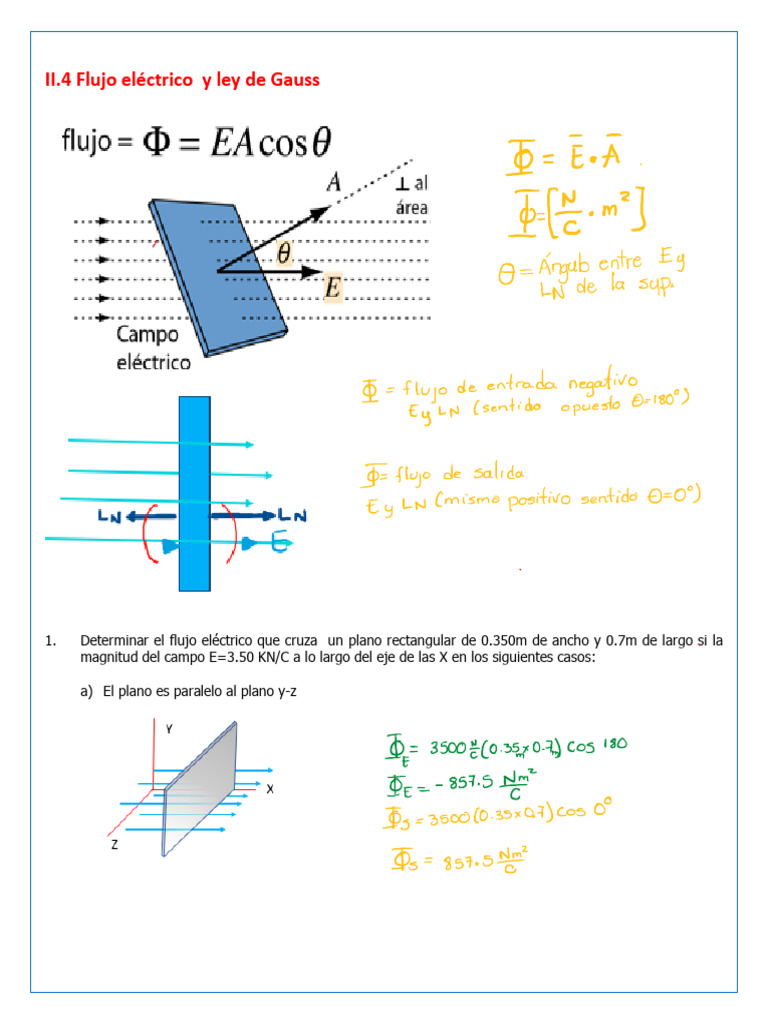 II.4 Flujo eléctrico y ley de Gauss
flujo = Φ = EA cos θ
Φ = E̅ • A̅
Φ = [N/C • m²]
A
⊥ al
área
θ
E
Campo
eléctrico
θ = Ángulo entre E y
LN de la sup.
Φ = flujo de entrada negativo
E y LN (sentido opuesto θ=180°)
Φ = flujo de salida
E y LN (mismo positivo sentido θ=0°)
LN
LN
E
1. Determinar el flujo eléctrico que cruza un plano rectangular de 0.350m de ancho y 0.7m de largo si la
magnitud del campo E=3.50 KN/C a lo largo del eje de las X en los siguientes casos:
a) El plano es paralelo al plano y-z
Y
X
Z
Φ_E = 3500 N/C (0.35m x 0.7m) cos 180
Φ_E = - 857.5 Nm²/C
Φ_S = 3500 (0.35x0.7) cos 0°
Φ_S = 857.5 Nm²/C